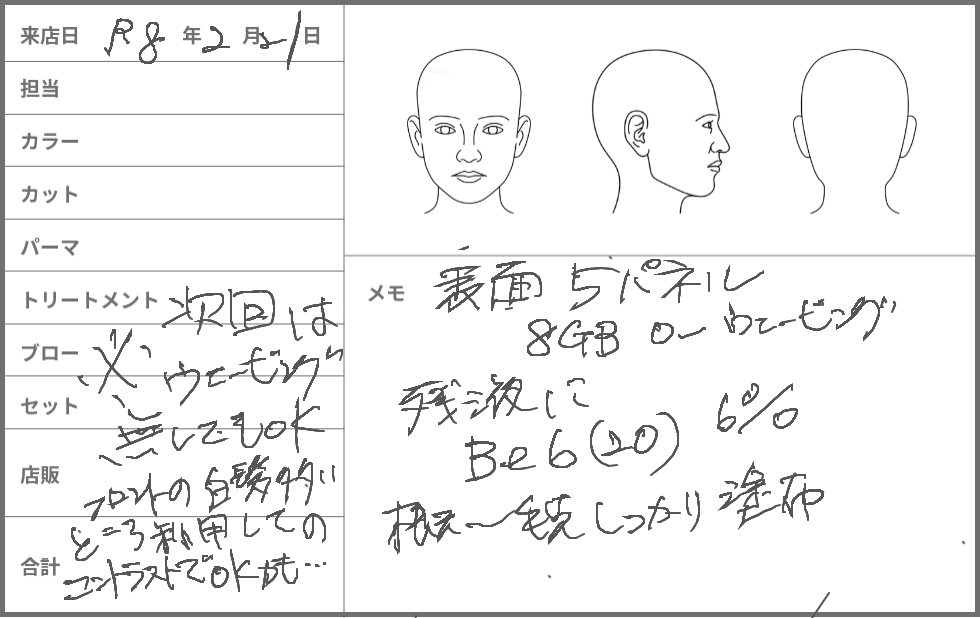 来店日 R8年2月21日
担当
カラー
カット
パーマ
トリートメント
ブロー
セット
店販
合計
※次回は
ウェービング
無しでもOK
フロントの白髪多い
ところ利用しての
コントラストでOKかも…
メモ
表面 5パネル
8GB 0〜ウェービング
残液に
Be6(20) 6%
根元〜毛先しっかり塗布